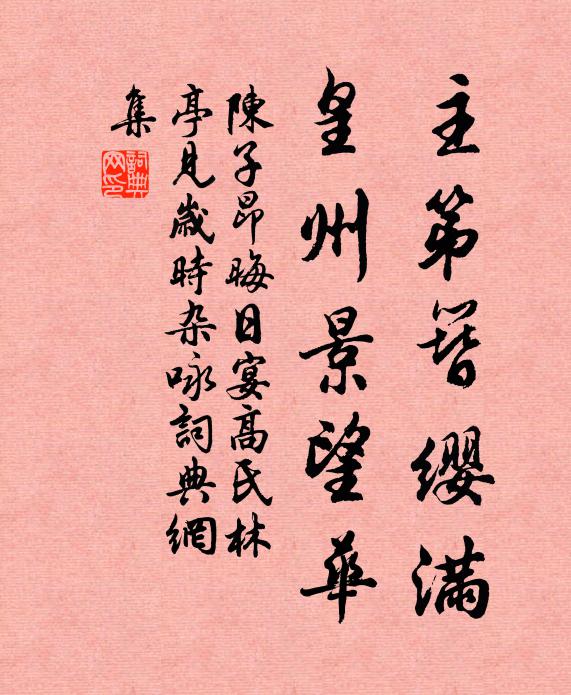 主第簪缨滿
皇州景望華
陳子昂晦日宴高氏林
亭見歲時杂咏詞典網
集
詞典
网印